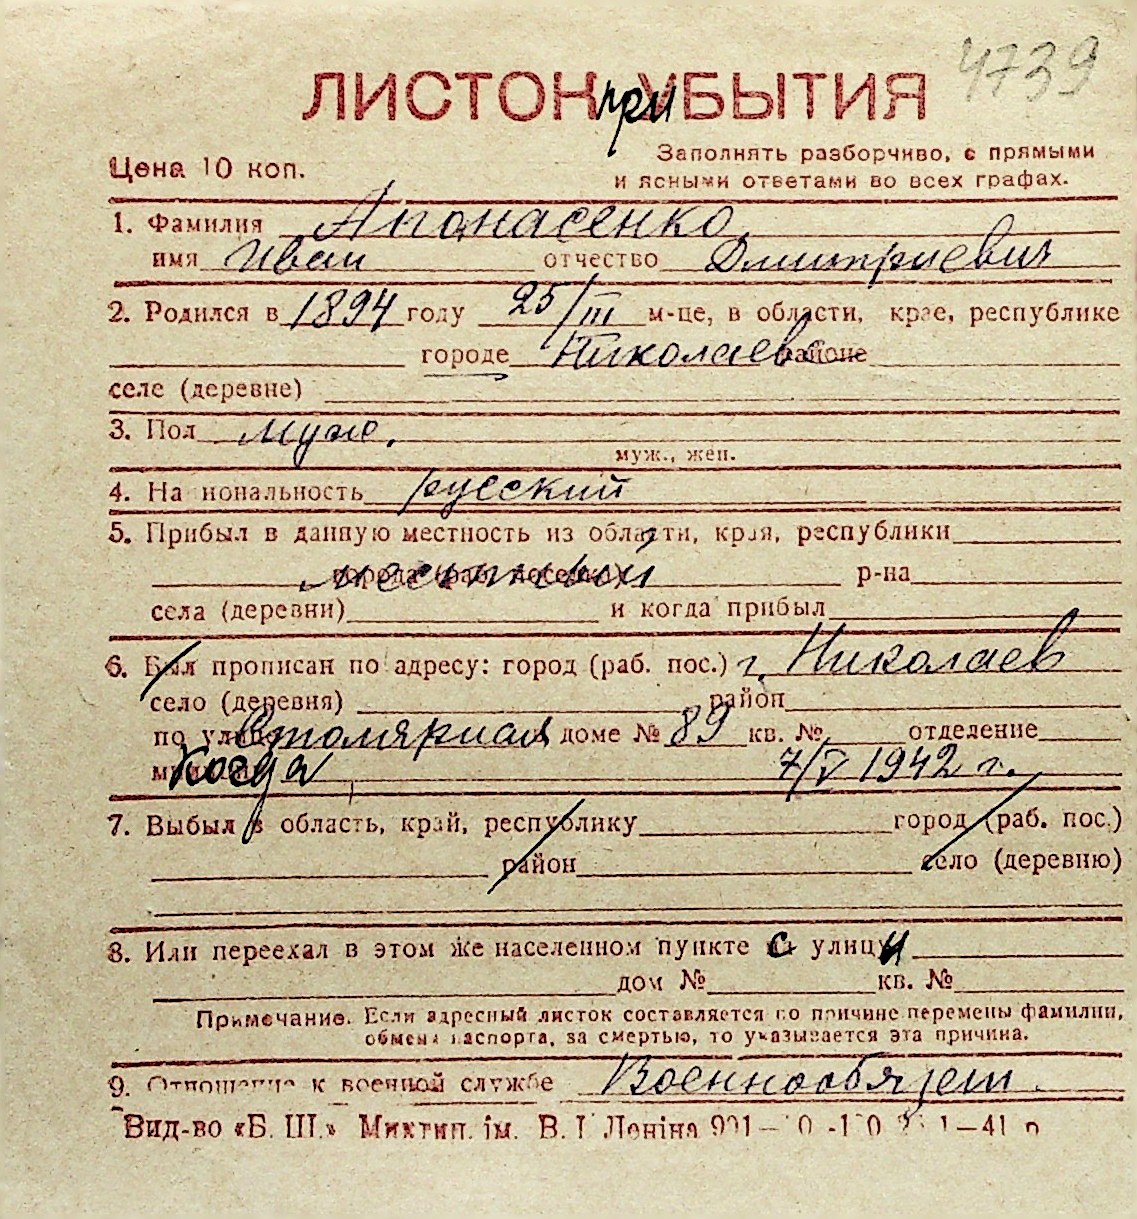 4739
ЛИСТОК при УБЫТИЯ
Цена 10 коп.
Заполнять разборчиво, с прямыми
и ясными ответами во всех графах.
1. Фамилия Апанасенко
имя Иван отчество Дмитриевич
2. Родился в 1894 году 25/III м-це, в области, крае, республике
городе Николаеве районе
селе (деревне)
3. Пол муж.
муж., жен.
4. Национальность русский
5. Прибыл в данную местность из области, края, республики
города (раб. поселка) местный р-на
села (деревни) и когда прибыл
6. Был прописан по адресу: город (раб. пос.) г. Николаев
село (деревня) район
по улице Столярная доме № 89 кв. № отделение
милиции Когда 7/V 1942 г.
7. Выбыл в область, край, республику город (раб. пос.)
район село (деревню)
8. Или переехал в этом же населенном пункте с улицы
дом № кв. №
Примечание. Если адресный листок составляется по причине перемены фамилии,
обмена паспорта, за смертью, то указывается эта причина.
9. Отношение к военной службе Военнообязан
Вид-во «Б. Ш.» Миктип. ім. В. І Леніна